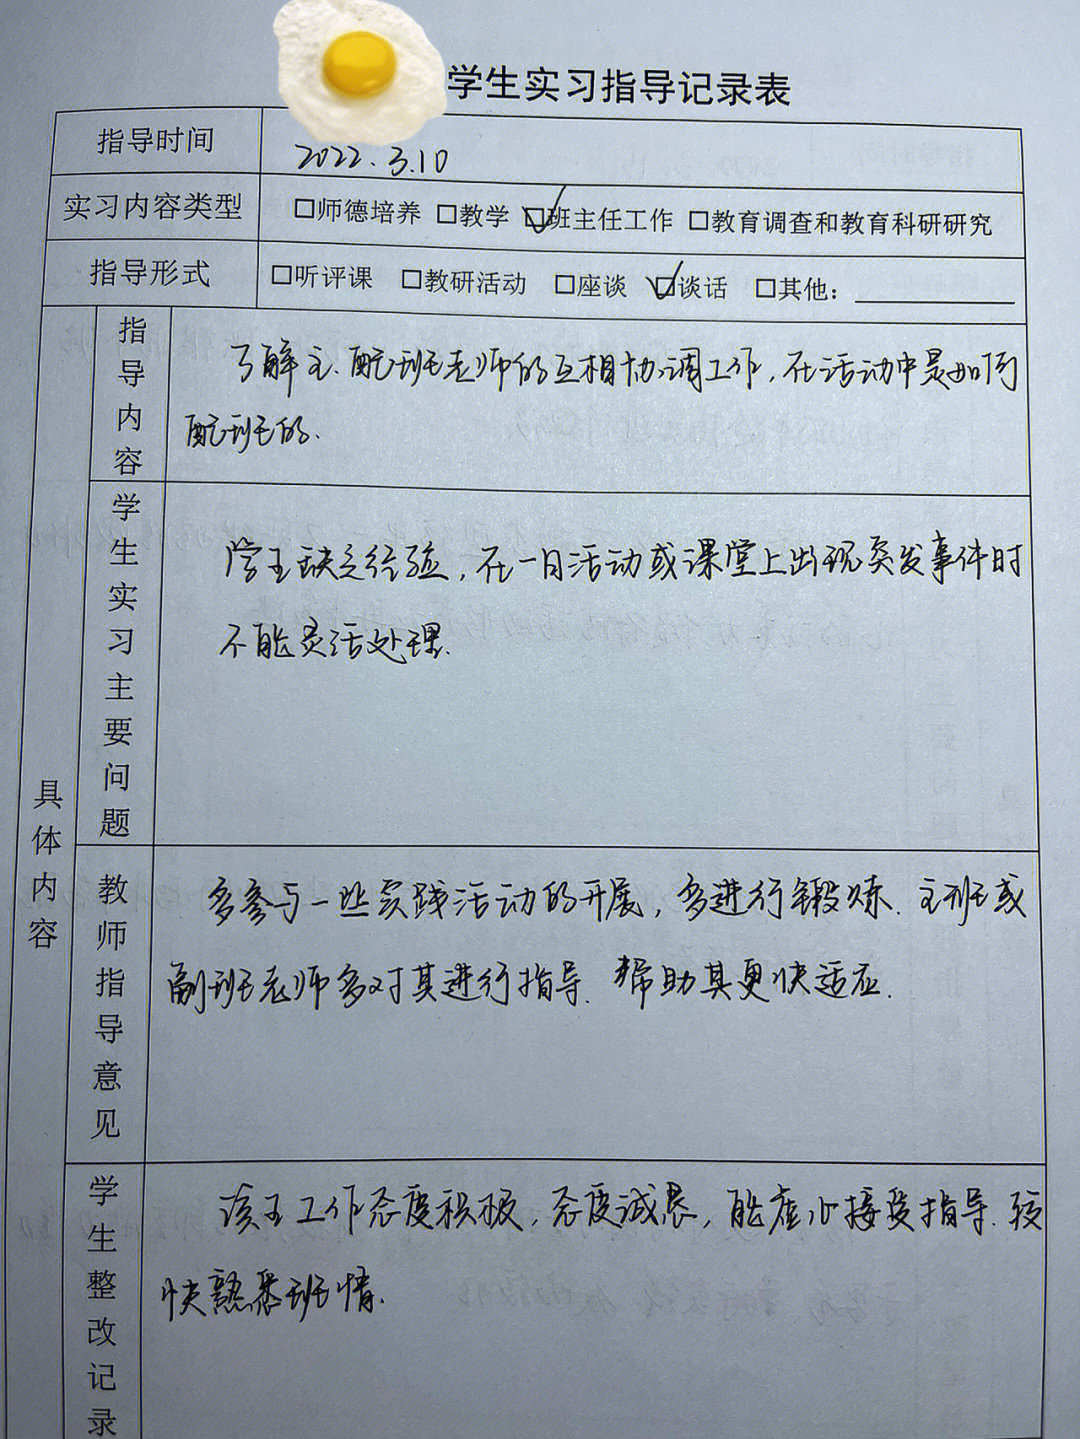 学生实习指导记录表
指导时间 2022.3.10
实习内容类型 □师德培养 □教学 ☑班主任工作 □教育调查和教育科研研究
指导形式 □听评课 □教研活动 □座谈 ☑谈话 □其他：
具体内容
指导内容
了解主、配班老师的互相协调工作,在活动中是如何
配班的.
学生实习主要问题
学生缺乏经验,在一日活动或课堂上出现突发事件时
不能灵活处理.
教师指导意见
多参与一些实践活动的开展,多进行锻炼.主班或
副班老师多对其进行指导.帮助其更快适应.
学生整改记录
该生工作态度积极,态度诚恳,能虚心接受指导.较
快熟悉班情.